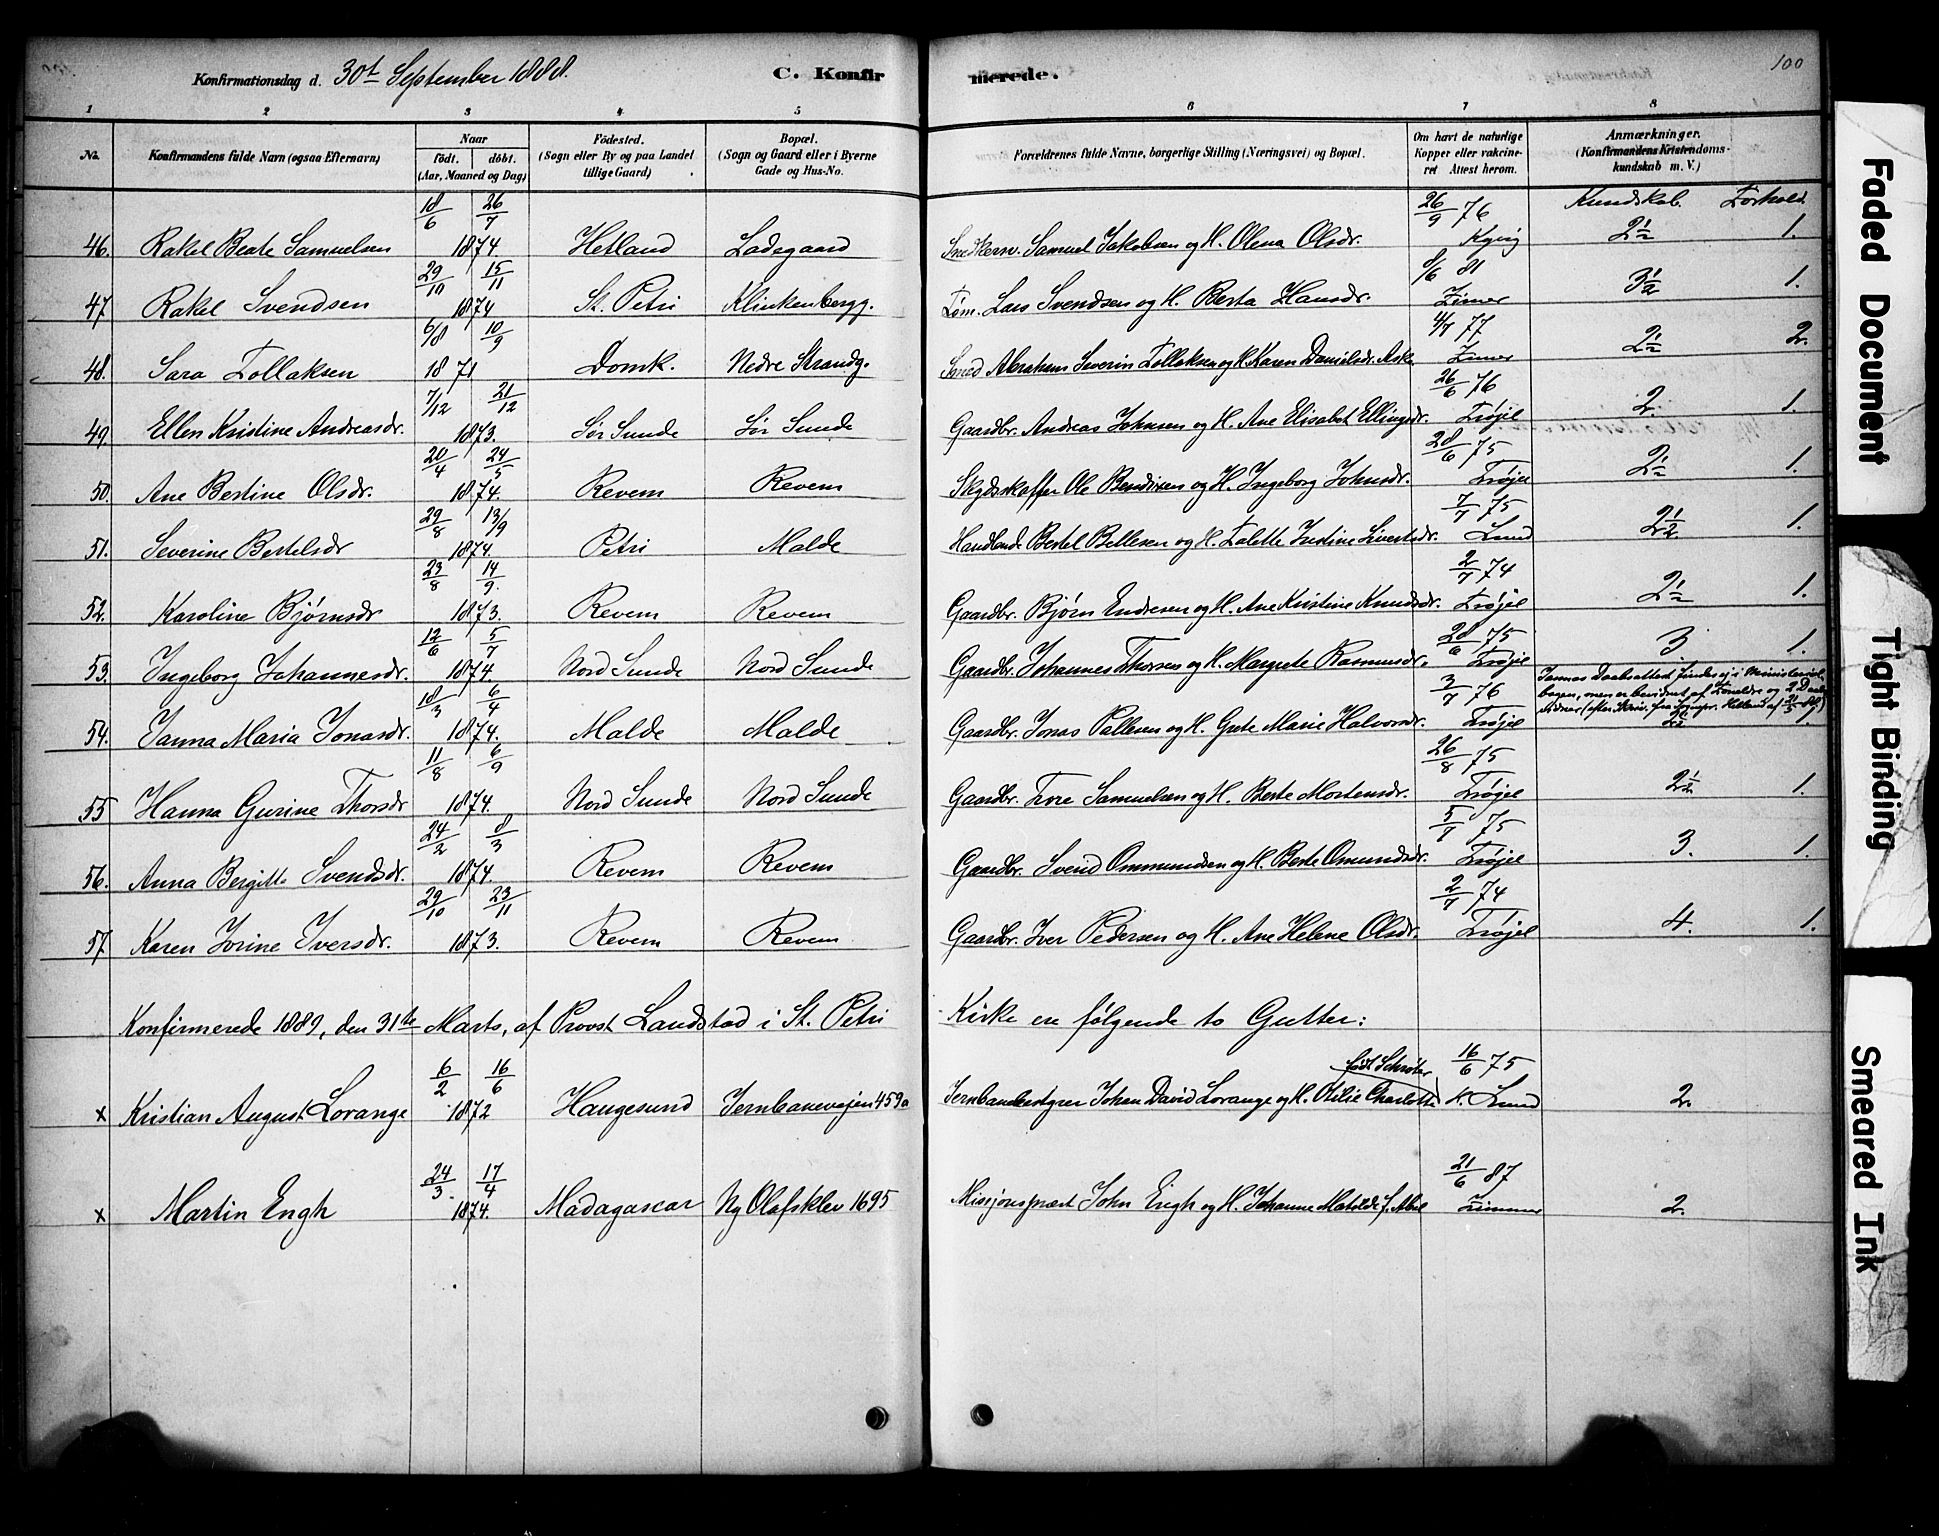 100
Konfirmationsdag d. 30te September 1888. C. Konfirmerede.
1 2 3 4 5 6 7 8
No. Konfirmandens fulde Navn (ogsaa Efternavn) Naar født. døbt. (Aar, Maaned og Dag) Fødested. (Sogn eller By og paa Landet tillige Gaard) Bopæl. (Sogn og Gaard eller i Byerne Gade og Hus-No. Forældrenes fulde Navne, borgerlige Stilling (Næringsvei) og Bopæl. Om havt de naturlige Kopper eller vakcineret. Attest herom. Anmærkninger. (Konfirmandens Kristendomskundskab m. V.)
Kundskab. Forhold.
46. Rakel Beate Samuelsen 18/6 26/7 1874. Hetland Ladegaard Snedkersv. Samuel Jakobsen og H. Olena Olsdr. 26/9 76 Kyvig 2 1/2 1.
47. Rakel Svendsen 29/10 15/11 1874 St. Petri Klinkenbergg. Tøm. Lars Svendsen og H. Berta Hansdr. 8/6 81 Zimer 3 1/2 1.
48. Sara Tollaksen 6/8 10/9 1871 Domk. Nedre Strandg. Smed Abraham Severin Tollaksen og H. Karen Danielsdr. Aske 4/7 77 Zimer 2 1/2 2.
49. Ellen Kristine Andreasdr. 7/12 21/12 1873. Sør Sunde Sør Sunde Gaardbr. Andreas Johnsen og H. Ane Elisabet Ellingsdr. 26/6 76 Trøjel 2. 1.
50. Ane Bertine Olsdr. 20/4 24/5 1874. Revem Revem Skydsskaffer Ole Bendixen og H. Ingeborg Johnsdr. 28/6 75 Trøjel 2 1/2 1.
51. Severine Bertelsdr 29/8 13/9 1874. Petri Malde Handland. Bertel Bellesen og H. Talette Justine Sivertsdr. 7/7 75 Lund 2 1/2 1.
52. Karoline Bjørnsdr 23/8 14/9. 1873. Revem Revem Gaardbr. Bjørn Endresen og H. Ane Kristine Knudsdr. 2/7 74 Trøjel 2 1/2 1.
53. Ingeborg Johannesdr. 12/6 5/7 1874. Nord Sunde Nord Sunde Gaardbr. Johannes Thorsen og H. Margrete Rasmusdr. 28/6 75 Trøjel 3. 1.
Jannas Daabsattest findes ej i Ministerialbogen, men er bevidnet af Forældre og 2
54. Janna Maria Jonasdr. 18/3 6/4 1874. Malde Malde Gaardbr. Jonas Pallesen og H. Grete Marie Halvorsdr. 3/7 76 Trøjel 1.
55 Hanna Gurine Thorsdr 11/8 6/9 1874. Nord Sunde Nord Sunde Gaardbr. Tore Samuelsen og H. Berte Mortensdr. 26/8 75 Trøjel 2 1/2. 1.
56. Anna Bergitte Svendsdr. 24/2 8/3 1874. Revem Revem Gaardbr. Svend Ommundsen og H. Berte Omundsdr. 5/7 75 Trøjel 3. 1.
57 Karen Jorine Iversdr. 29/10 23/11 1873. Revem Revem Gaardbr. Iver Pedersen og H. Ane Helene Olsdr. 2/7 74 Trøjel 4. 1.
Konfirmerede 1889, den 31te Marts, af Provst Landstad i St. Petri Kirke ere følgende to Gutter:
x Kristian August Lorange 6/2 16/6 1872 Haugesund Jernbanevejen 459a Jernbanebestyrer Johan David Lorange og H. Otilie Charlotte født Schrøter 16/6 75 K. Lund 2.
x Martin Engh 24/3. 17/4 1874. Madagascar Ny Olafsklev 1695 Misjonspræst John Engh og H. Johanne Matilde f. Abel 21/6 87 Zimmer 2.
Faded Document
Tight Binding
Smeared Ink